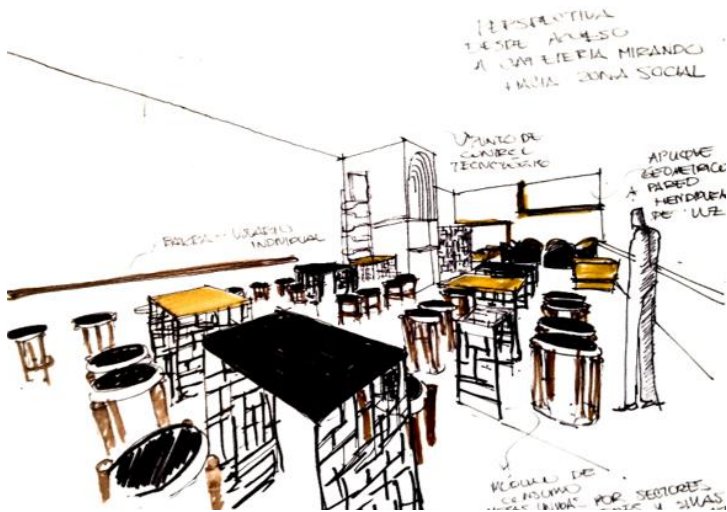 PERSPECTIVA
DESDE ACCESO
A CAFETERIA MIRANDO
HACIA ZONA SOCIAL
PUNTO DE
CONTROL
TECNOLÓGICO
APLIQUE
GEOMETRICO
A PARED
HENDIDURA
DE LUZ
BARRA USUARIO
INDIVIDUAL
MÓDULO DE
CONSUMO
MESAS UNIDAS POR SECTORES
Y SILLAS